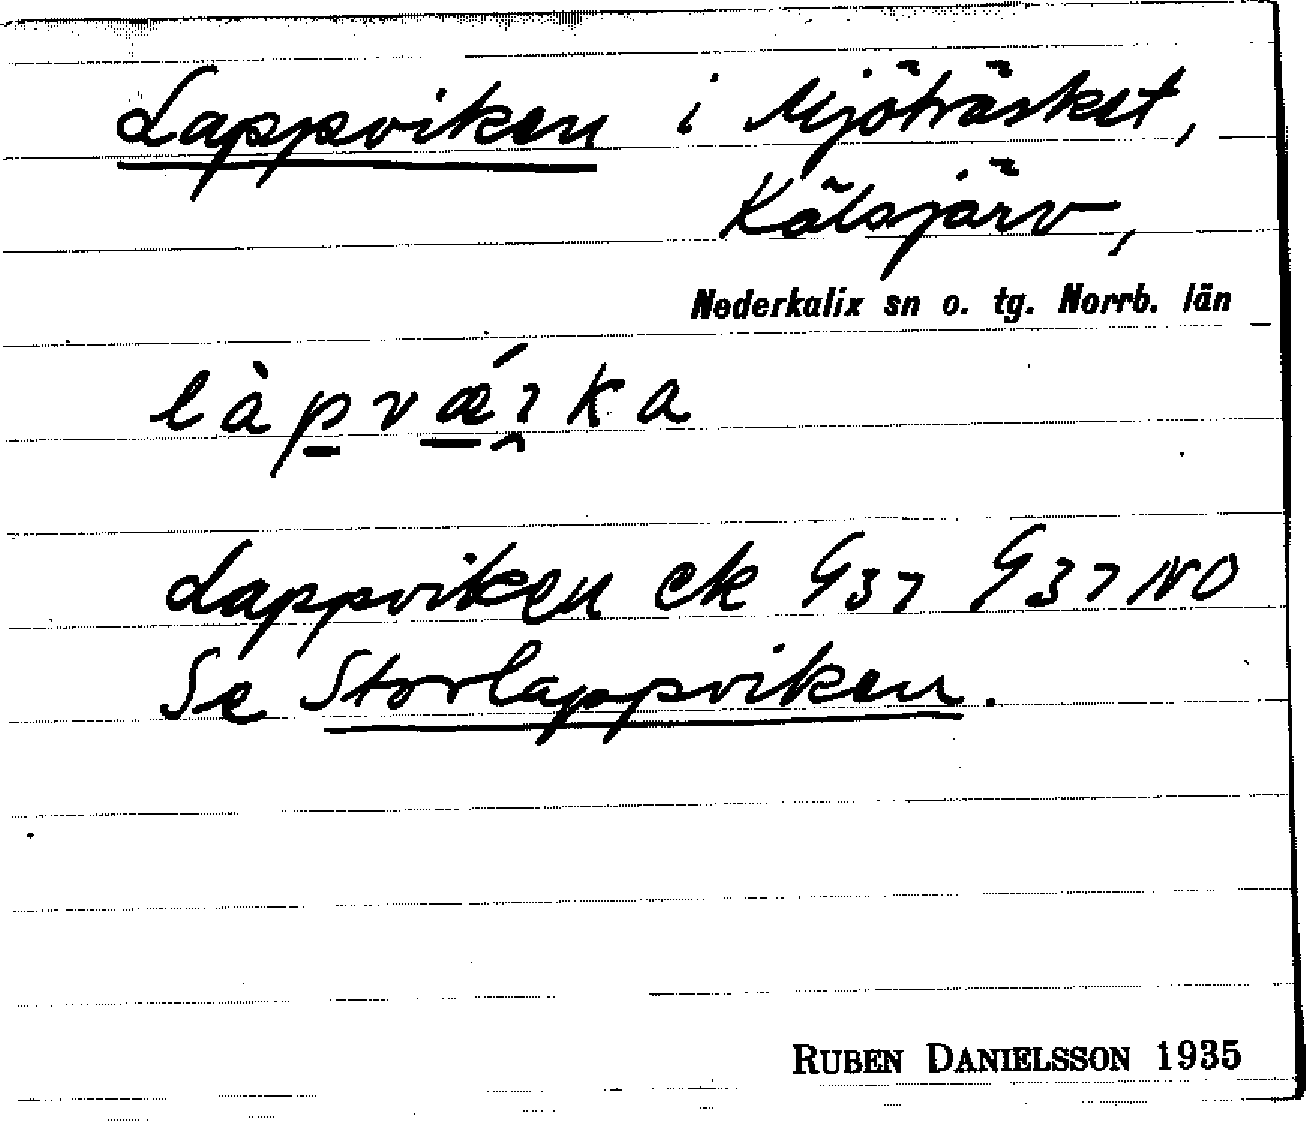 Lappviken i Mjöträsket,
Kälsjärv,
Nederkalix sn o. tg. Norrb. län
làpvǽıka
Lappviken ek G37 G37NO
Se Storlappviken.
RUBEN DANIELSSON 1935